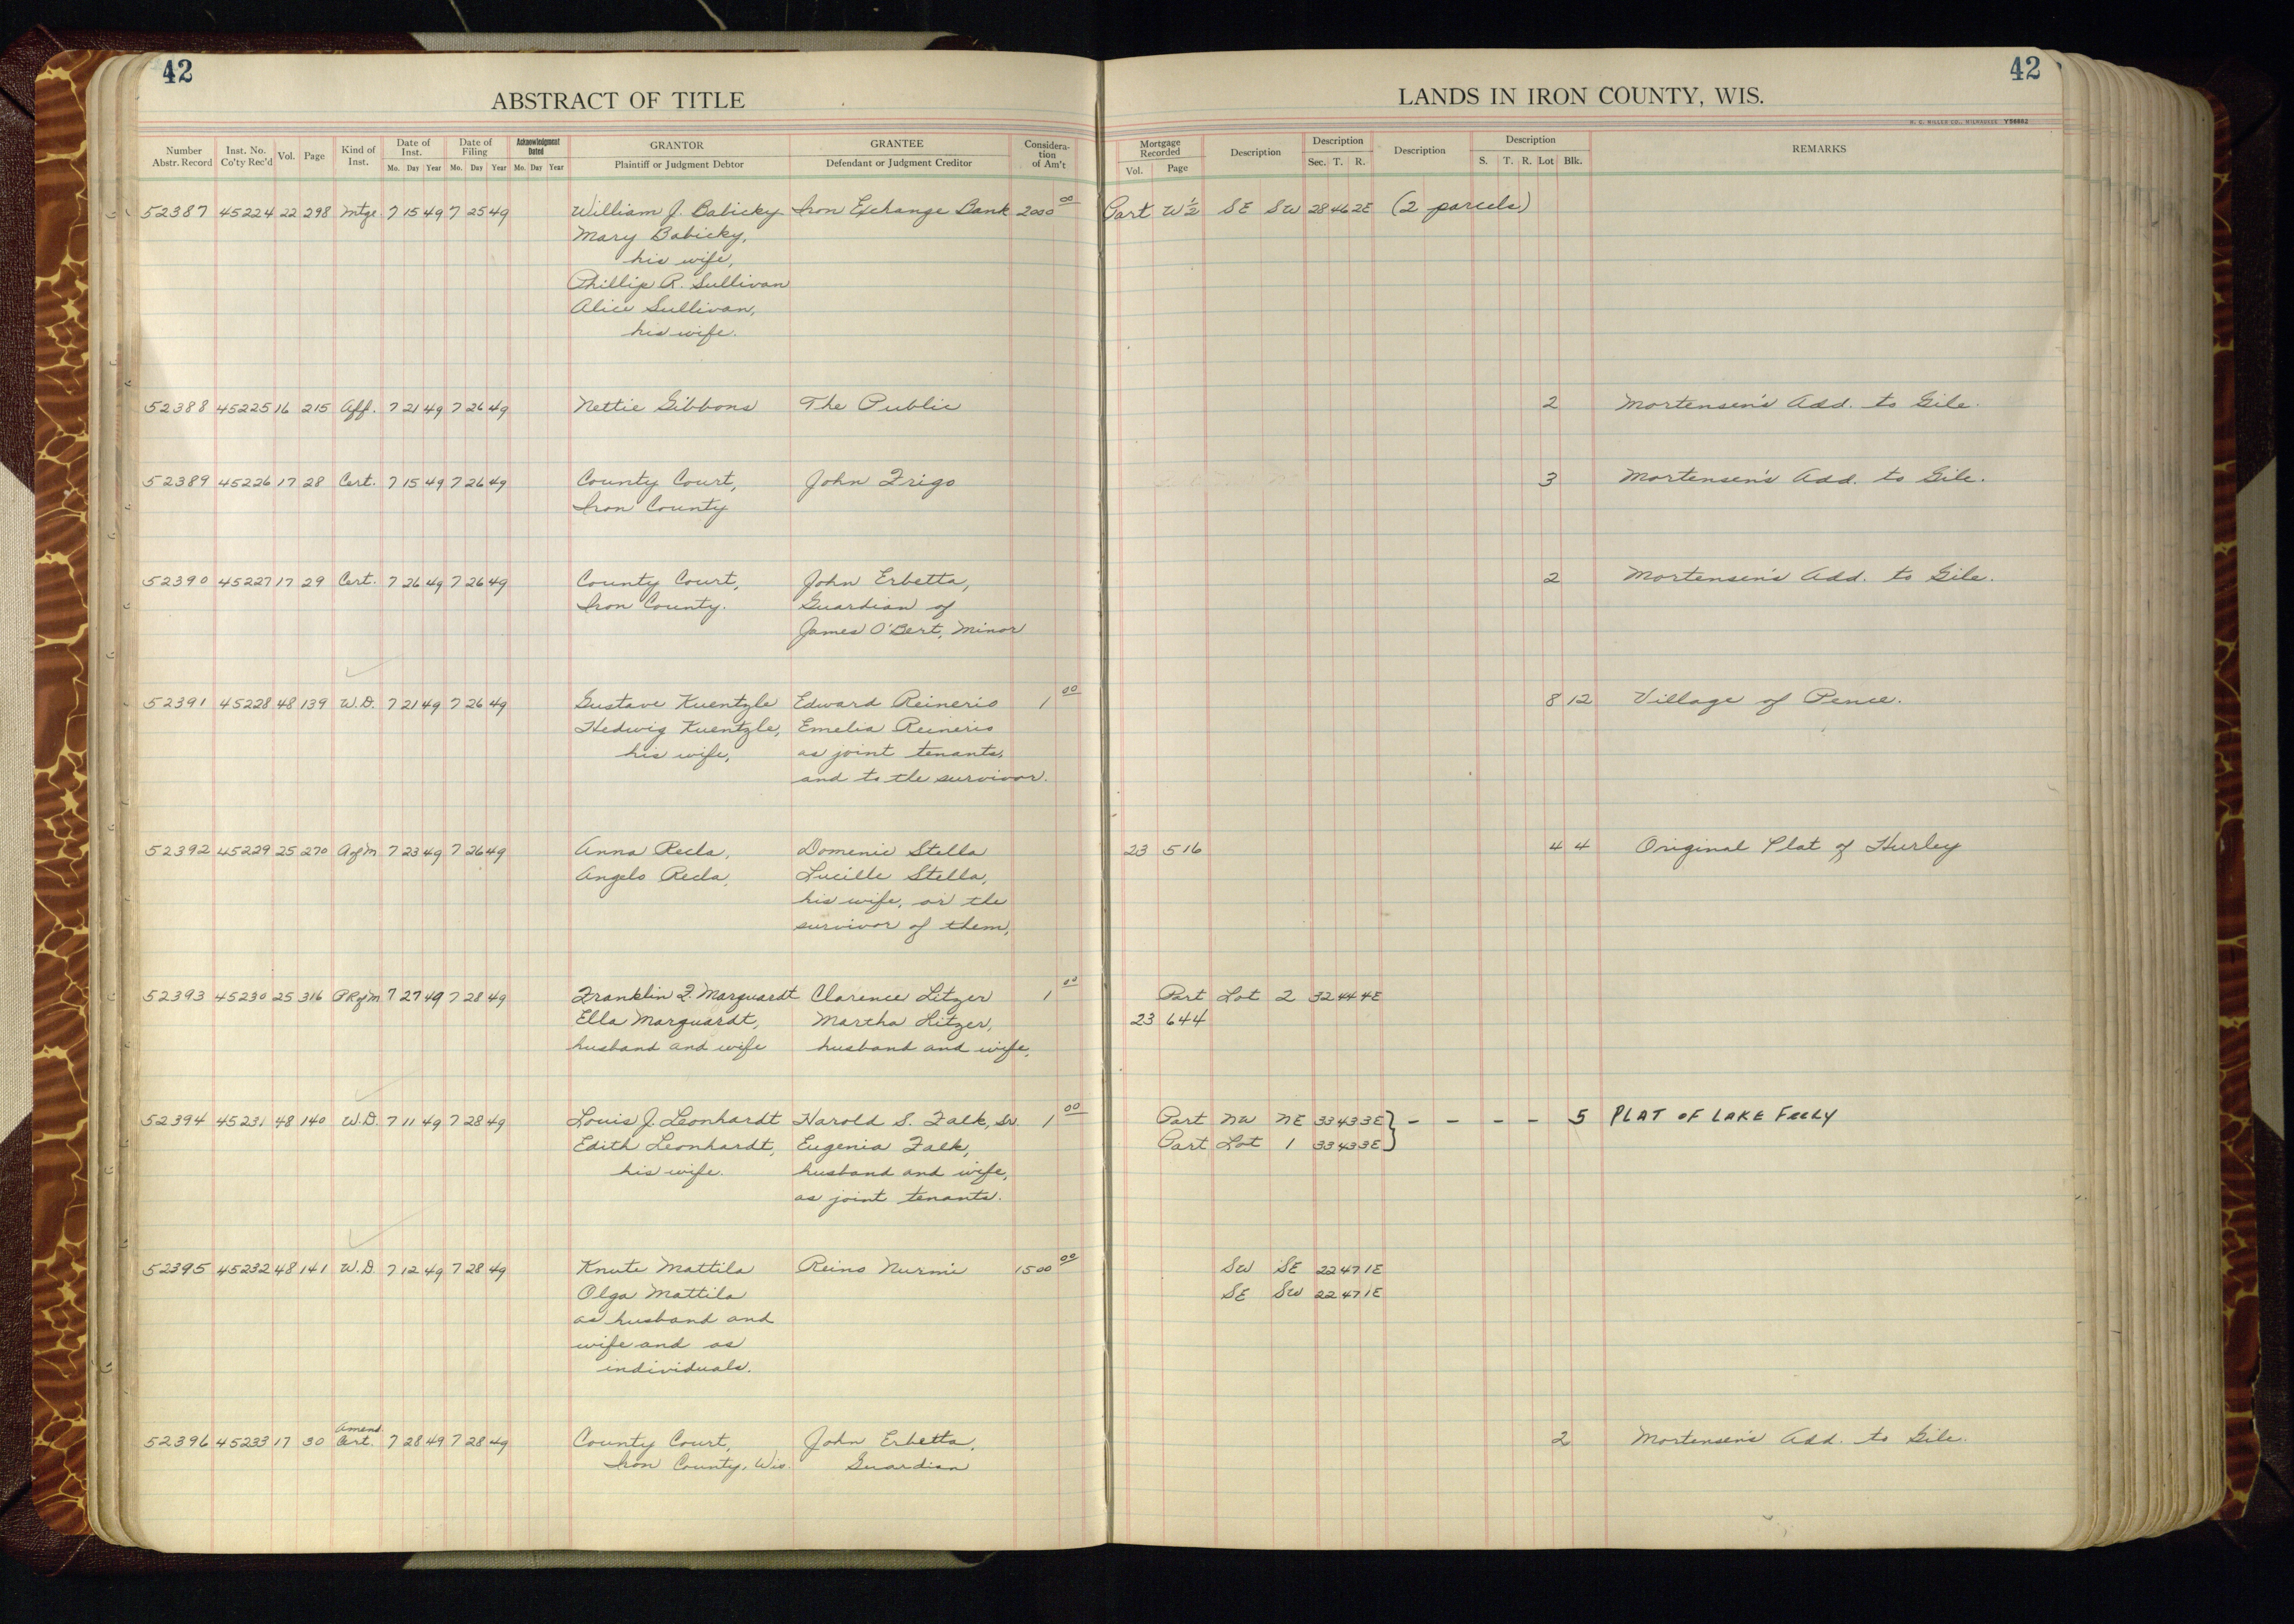 42
42
ABSTRACT OF TITLE
LANDS IN IRON COUNTY, WIS.
H. C. MILLER CO., MILWAUKEE Y56882
Number Abstr. Record Inst. No. Co'ty Rec'd Vol. Page Kind of Inst. Date of Inst. Mo. Day Year Date of Filing Mo. Day Year Acknowledgment Dated Mo. Day Year GRANTOR Plaintiff or Judgment Debtor GRANTEE Defendant or Judgment Creditor Consideration of Am't
Mortgage Recorded Vol. Page Description Description Sec. T. R. Description Description S. T. R. Lot Blk. REMARKS
52387 45224 22 298 Mtge. 7 15 49 7 25 49 William J. Babicky Iron Exchange Bank 2000 00 Part W½ SE SW 28 46 2E (2 parcels)
Mary Babicky,
his wife,
Phillip R. Sullivan
Alice Sullivan,
his wife.
52388 45225 16 215 Aff. 7 21 49 7 26 49 Nettie Gibbons The Public 2 Mortensen's Add. to Gile.
52389 45226 17 28 Cert. 7 15 49 7 26 49 County Court, John Frigo 3 Mortensen's Add. to Gile.
Iron County
52390 45227 17 29 Cert. 7 26 49 7 26 49 County Court, John Erbetta, 2 Mortensen's Add. to Gile.
Iron County. Guardian of
James O'Bert, Minor
52391 45228 48 139 W.D. 7 21 49 7 26 49 Gustave Kuentzle Edward Reinerio 1 00 8 12 Village of Pence.
Hedwig Kuentzle, Emelia Reinerio
his wife, as joint tenants,
and to the survivor.
52392 45229 25 270 A of M 7 23 49 7 26 49 Anna Recla, Domenic Stella 23 516 4 4 Original Plat of Hurley
Angelo Recla, Lucille Stella,
his wife, or the
survivor of them,
52393 45230 25 316 PR of M 7 27 49 7 28 49 Franklin F. Marquardt Clarence Litzer 1 00 Part Lot 2 32 44 4E
Ella Marquardt, Martha Litzer, 23 644
husband and wife husband and wife,
52394 45231 48 140 W.D. 7 11 49 7 28 49 Louis J. Leonhardt Harold S. Falk, Sr. 1 00 Part NW NE 33 43 3E } - - - - 5 PLAT OF LAKE FEELY
Edith Leonhardt, Eugenia Falk, Part Lot 1 33 43 3E
his wife. husband and wife,
as joint tenants.
52395 45232 48 141 W.D. 7 12 49 7 28 49 Knute Mattila Reino Nurmi 1500 00 SW SE 22 47 1E
Olga Mattila SE SW 22 47 1E
as husband and
wife and as
individuals.
52396 45233 17 30 Amend. Cert. 7 28 49 7 28 49 County Court, John Erbetta, 2 Mortensen's Add. to Gile.
Iron County, Wis. Guardian